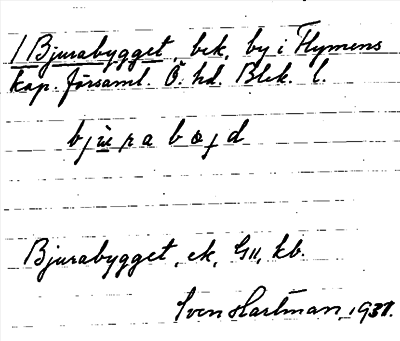 / Bjurabygget, bek. by i Flymens
kap. församl. Ö. hd. Blek. l.
Bjurabygget, ek, G11, kb.
Sven Hartman, 1937.